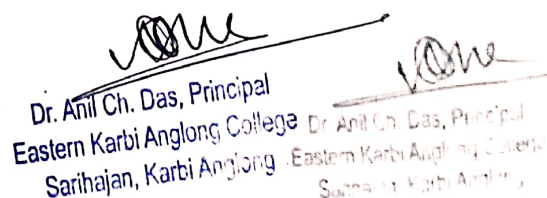 Dr. Anil Ch. Das, Principal
Eastern Karbi Anglong College
Sarihajan, Karbi Anglong
Dr. Anil Ch. Das, Principal
Eastern Karbi Anglong College
Karbi Anglong